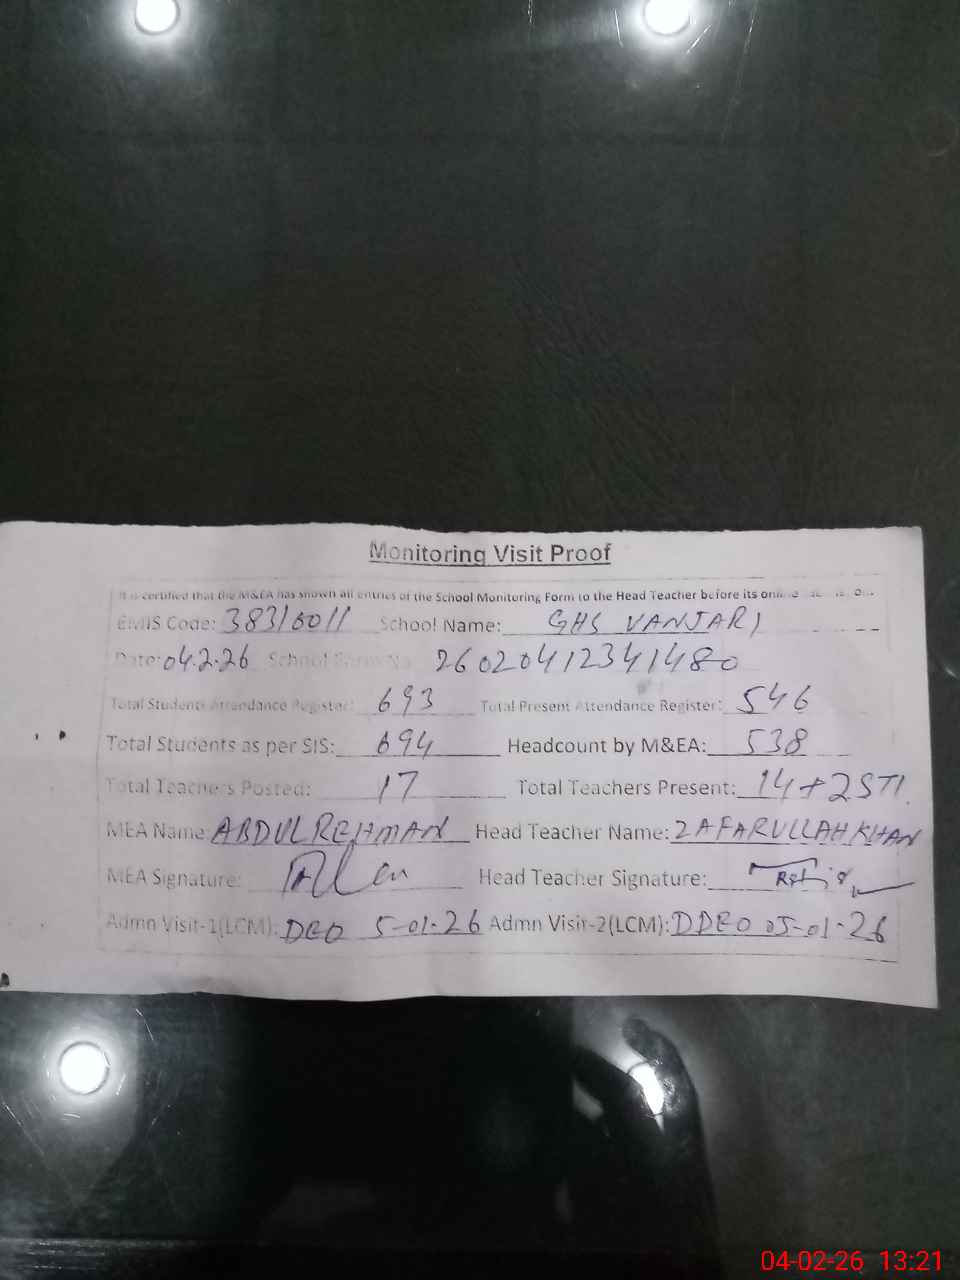 Monitoring Visit Proof
It is certified that the M&EA has shown all entries of the School Monitoring Form to the Head Teacher before its online
EMIS Code: 38310011 School Name: GHS VANJARI
Date: 04.2.26 School Form No 26020412341480
Total Students Attendance Register: 693 Total Present Attendance Register: 546
Total Students as per SIS: 694 Headcount by M&EA: 538
Total Teachers Posted: 17 Total Teachers Present: 14+2STI
MEA Name: ABDUL REHMAN Head Teacher Name: ZAFARULLAH KHAN
MEA Signature: Head Teacher Signature:
Admn Visit-1(LCM): DEO 5-01-26 Admn Visit-2(LCM): DDEO 05-01-26
04-02-26 13:21